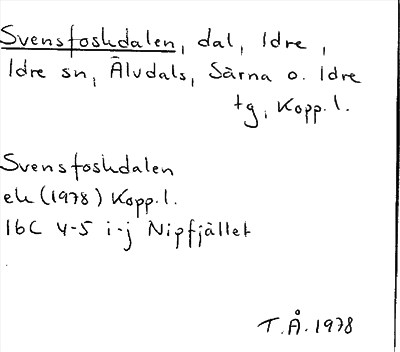 Svensfoskdalen, dal, Idre,
Idre sn, Älvdals, Särna o. Idre
tg, Kopp.l.
Svensfoskdalen
ek (1978) Kopp.l.
16C 4-5 i-j Nipfjället
T.Å. 1978